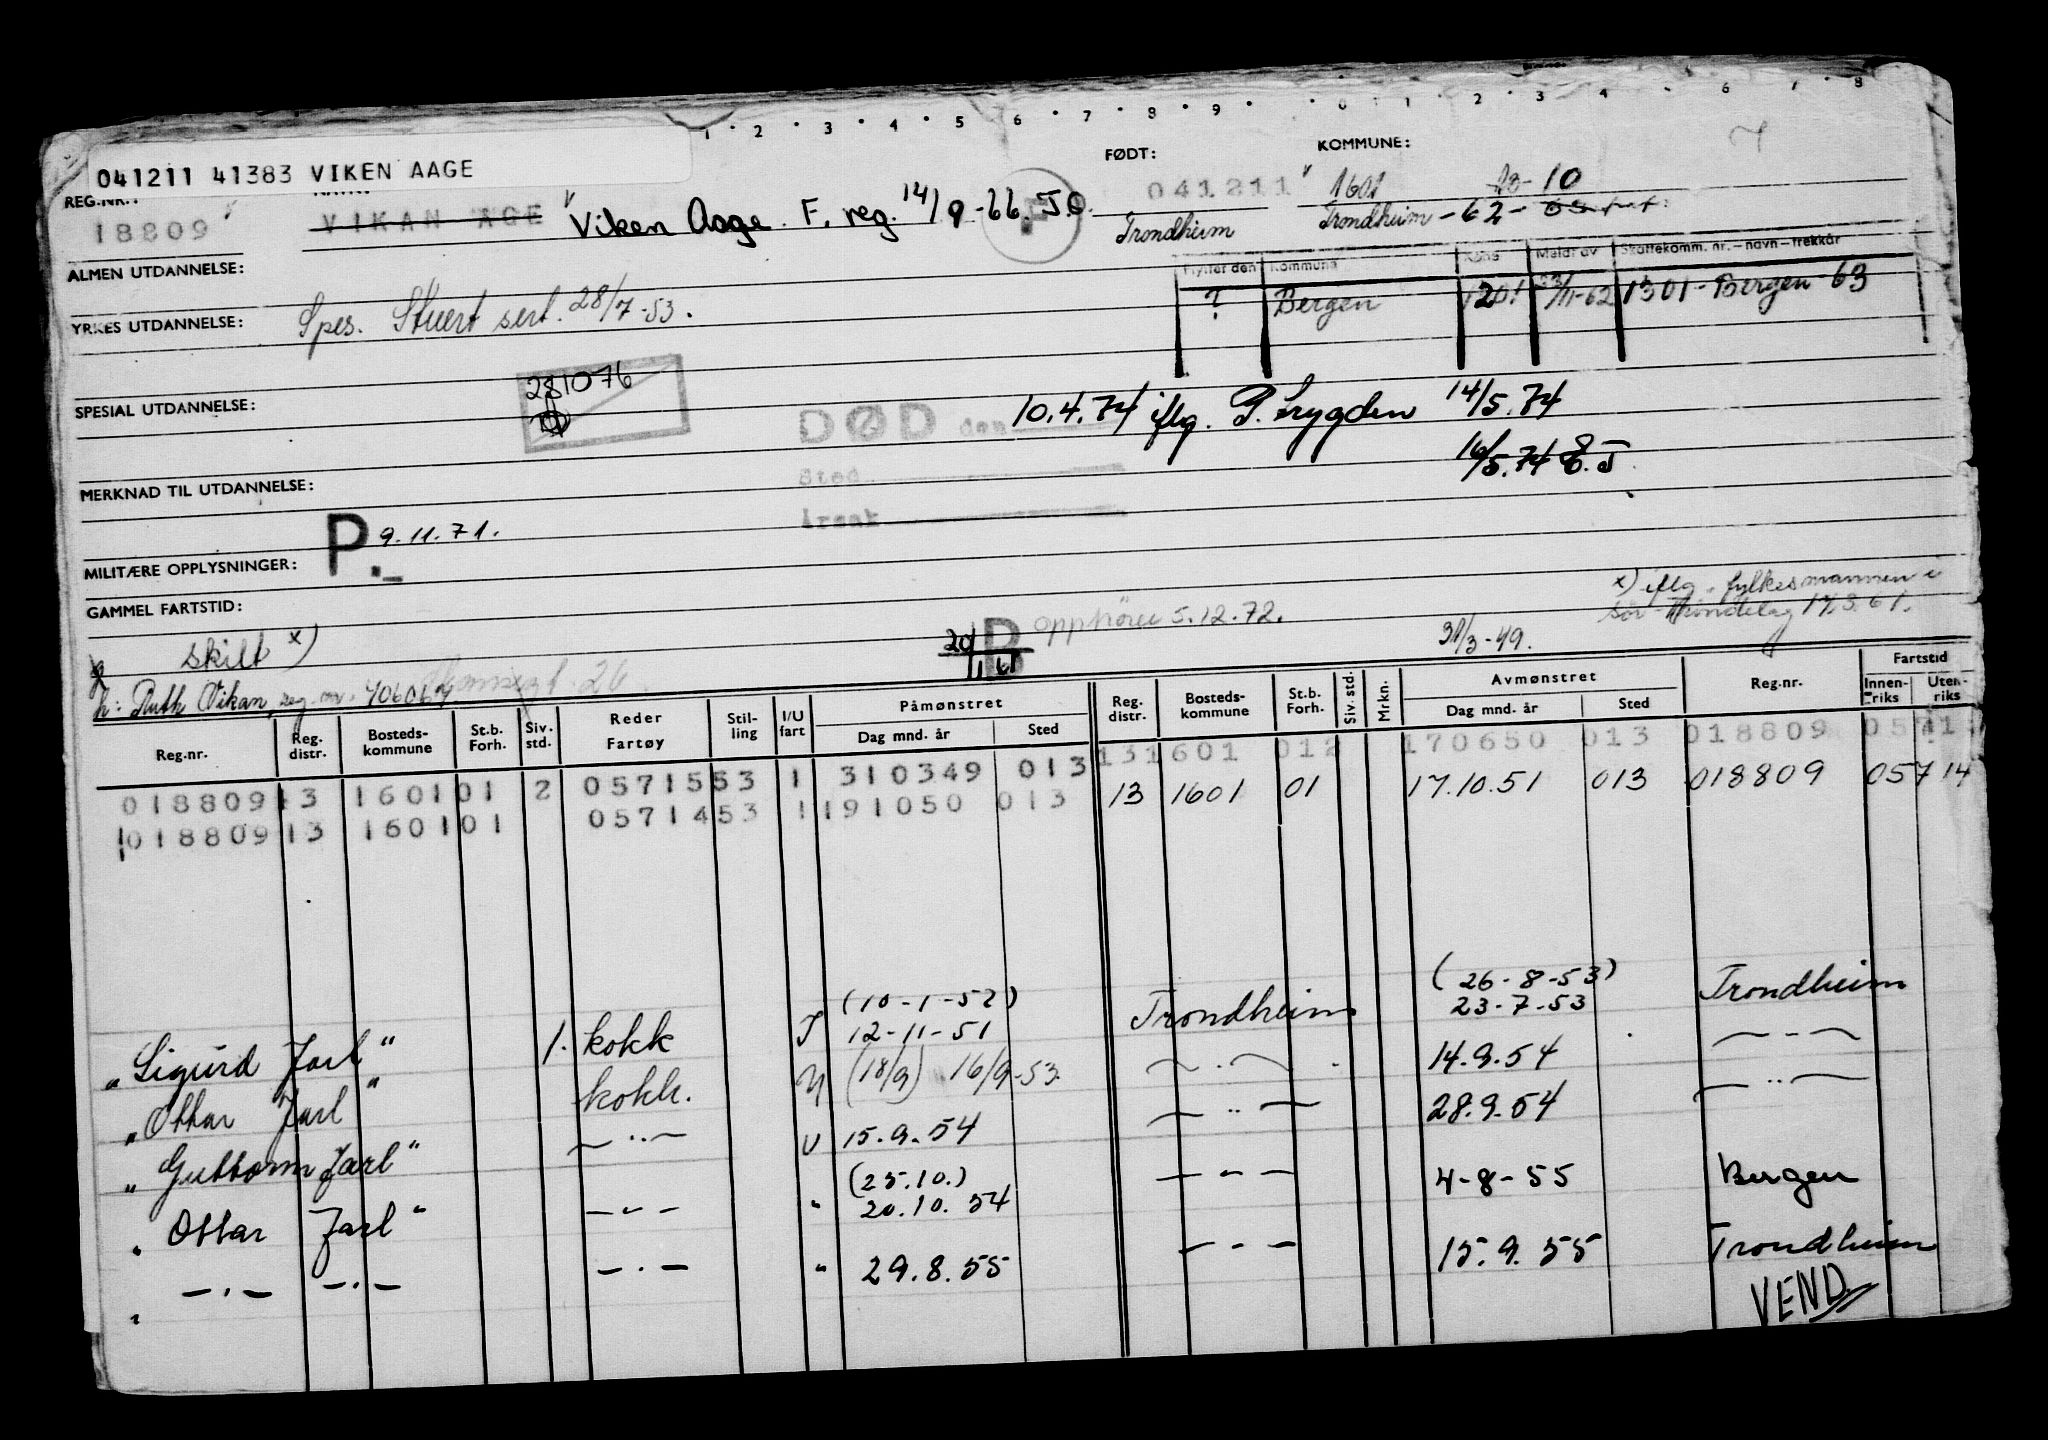 1 · 2 · 3 · 4 · 5 · 6 · 7 · 8 · 9 · 0 1 2 3 4 6 7 8
041211 41383 VIKEN AAGE
FØDT: KOMMUNE: 7
REG.NR.: 041211 1601 10
18809 VIKAN AGE Viken Aage. F. reg. 14/9-66. J.O. Trondheim Trondheim - 62 -
ALMEN UTDANNELSE:
Flyttet den Kommune Meldt av Skattekomm. nr. – navn – trekkår
? Bergen 1301 - Bergen - 63
YRKES UTDANNELSE: Spes. Stuert sert. 28/7-53.
281076
SPESIAL UTDANNELSE: DØD den 10.4.74 iflg. P. Trygden 14/5.74
Sted 16/5.74
MERKNAD TIL UTDANNELSE: Årsak
P. 9.11.71.
MILITÆRE OPPLYSNINGER:
GAMMEL FARTSTID: x) iflg. fylkesmannen i
Sør-Trøndelag 17/3.61.
skilt x) B opphører 5.12.72. 31/3-49.
h: Ruth Vikan, reg. nr. 706067
Reg.nr. Reg. distr. Bosteds-kommune St.b. Forh. Siv. std. Reder Fartøy Stil-ling I/U fart Påmønstret Dag mnd. år Sted Reg. distr. Bosteds-kommune St.b. Forh. Siv. std. Mrkn. Avmønstret Dag mnd. år Sted Reg.nr. Fartstid Innen-riks Uten-riks
018809 13 1601 01 2 05715 53 1 310349 013 13 1601 012 170650 013 018809 05715
018809 13 1601 01 05714 53 1 191050 013 13 1601 01 17.10.51 013 018809 057 14
(10-1-52) (26-8-53)
„Sigurd Jarl" 1. kokk I 12-11-51 Trondheim 23-7-53 Trondheim
„Ottar Jarl" kokk. U (18/9) 16/9-53. — · — 14.9.54 — · —
„Guttorm Jarl" — ·· — U 15.9.54 — ·· — 28.9.54 — ·· —
(25.10.)
„Ottar Jarl" — " — " 20.10.54 — " — 4-8-55 Bergen
„ — · — — · — — · — " 29.8.55 — " — 15.9.55 Trondheim
VEND